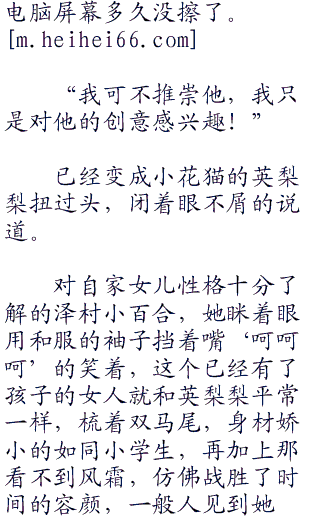 电脑屏幕多久没擦了。
[m.heihei66.com]
“我可不推崇他，我只
是对他的创意感兴趣！”
已经变成小花猫的英梨
梨扭过头，闭着眼不屑的说
道。
对自家女儿性格十分了
解的泽村小百合，她眯着眼
用和服的袖子挡着嘴‘呵呵
呵’的笑着，这个已经有了
孩子的女人就和英梨梨平常
一样，梳着双马尾，身材娇
小的如同小学生，再加上那
看不到风霜，仿佛战胜了时
间的容颜，一般人见到她